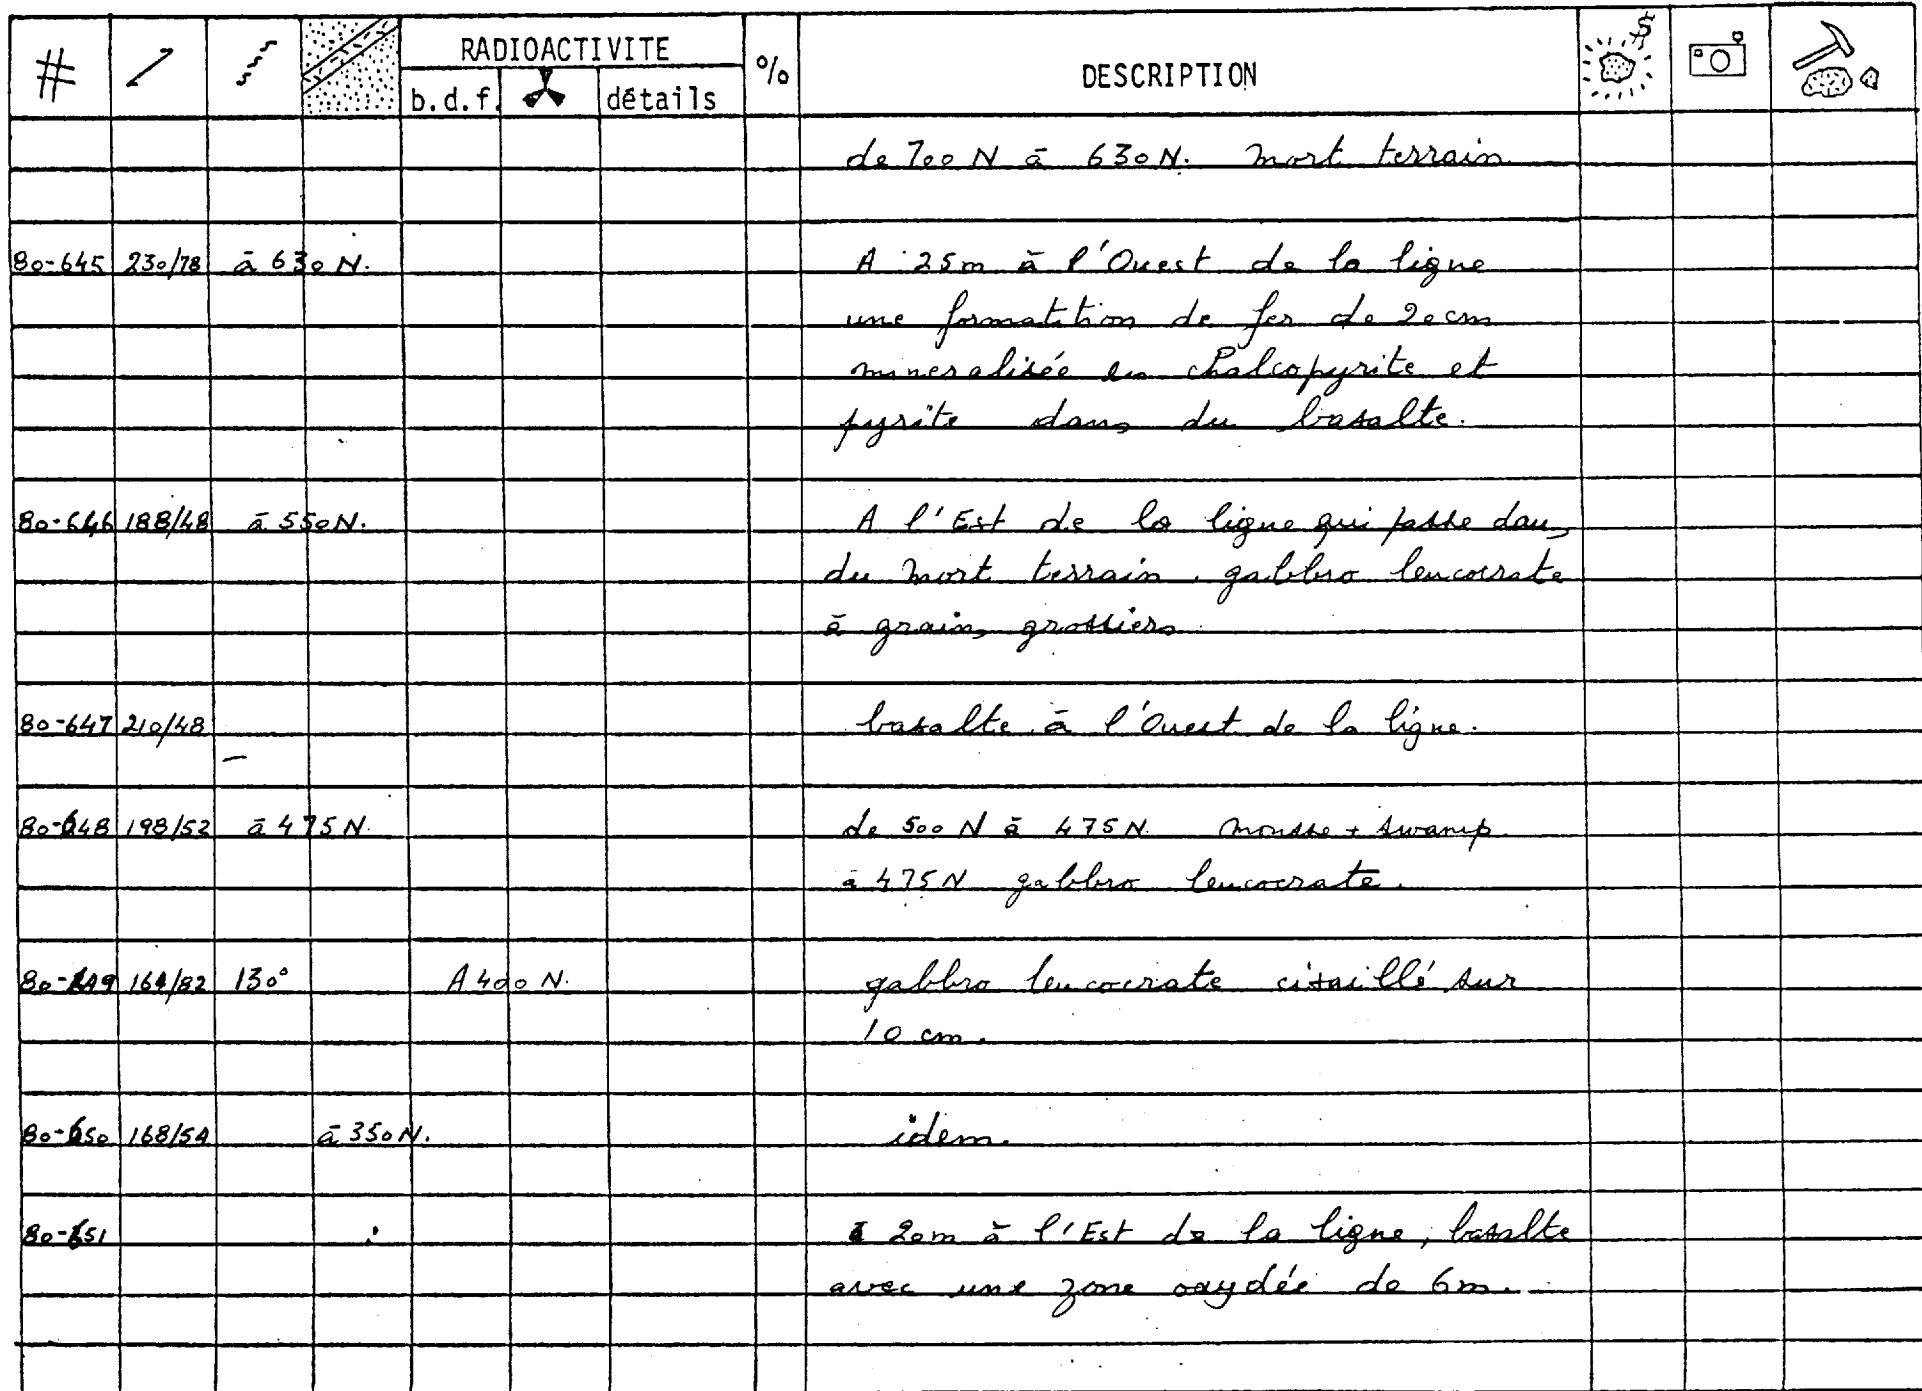 # RADIOACTIVITE % DESCRIPTION $
b.d.f. détails
de 700 N à 630 N. Mort terrain
80-645 230/78 à 630 N. A 25m à l'Ouest de la ligne
une formatition de fer de 20cm
mineralisée en chalcopyrite et
pyrite dans du basalte.
80-646 188/48 à 550N. A l'Est de la ligne qui passe dans
du mort terrain. gabbro leucocrate
à grains grossiers
80-647 210/48 basalte à l'Ouest de la ligne.
80-648 198/52 à 475 N. de 500 N à 475 N. mousse + swamp
à 475 N gabbro leucocrate.
80-649 164/82 130° A 400 N. gabbro leucocrate cisaillé sur
10 cm.
80-650 168/54 à 350 N. idem.
80-651 à 20m à l'Est de la ligne, basalte
avec une zone oxydée de 6m.